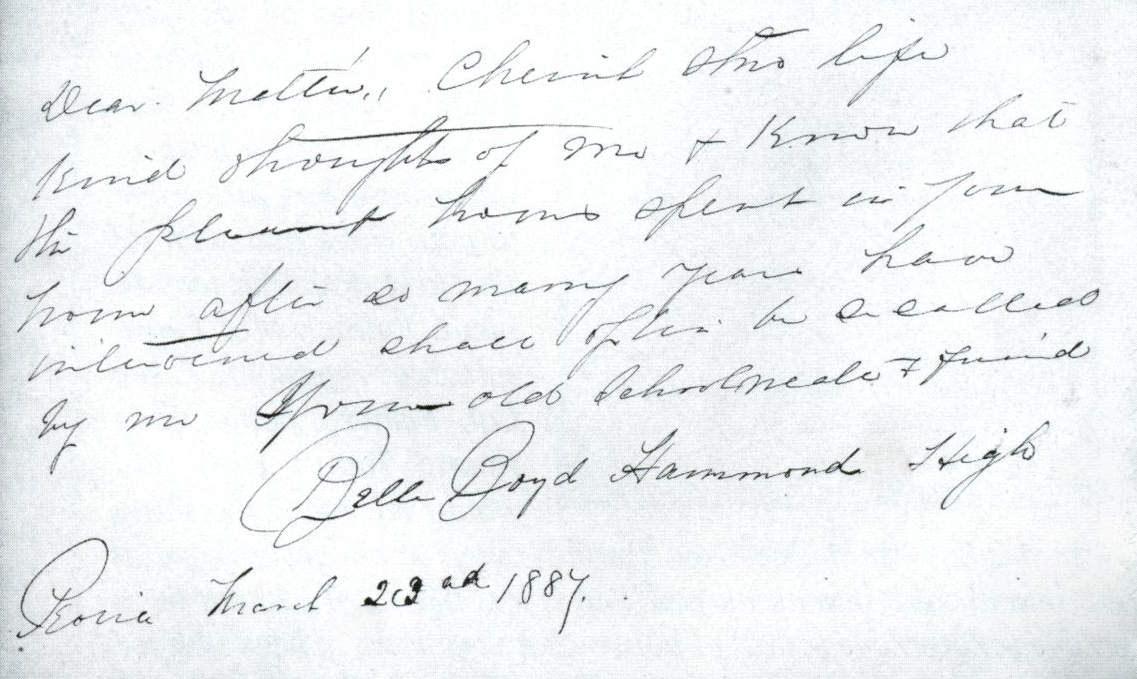 Dear Mattie, Cherish thro life
kind thoughts of me & know that
the pleasant hours spent in your
home after so many years have
intervened shall often be recalled
by me Your old Schoolmate & friend
Belle Boyd Hammond High
Peoria March 22nd 1887.